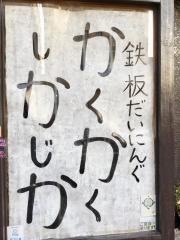 鉄板だいにんぐ
かくがく
しかじか